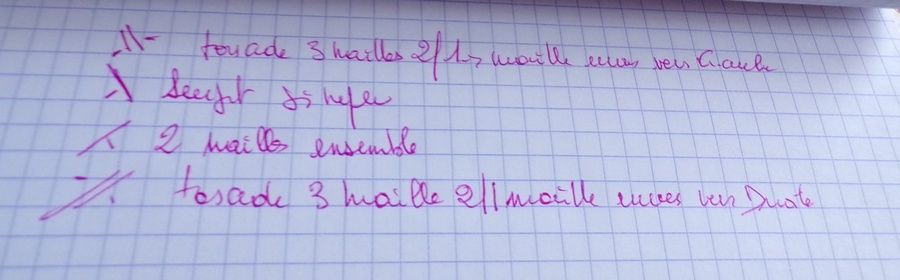 torsade 3 mailles 2/1 maille vers Gauche
Surjet simple
2 mailles ensemble
torsade 3 maille 2/1 maille vers Droite